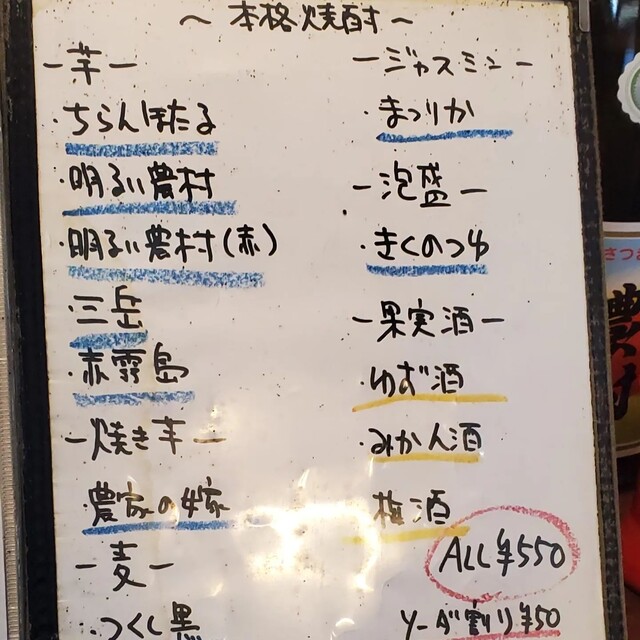 ～本格焼酎～
－芋－
・ちらんほたる
・明るい農村
・明るい農村(赤)
・三岳
・赤霧島
－焼き芋－
・農家の嫁
－麦－
・つくし黒
－ジャスミン－
・まつりか
－泡盛－
・きくのつゆ
－果実酒－
・ゆず酒
・みかん酒
・梅酒
ALL ¥550
ソーダ割り ¥50
さつま
農村